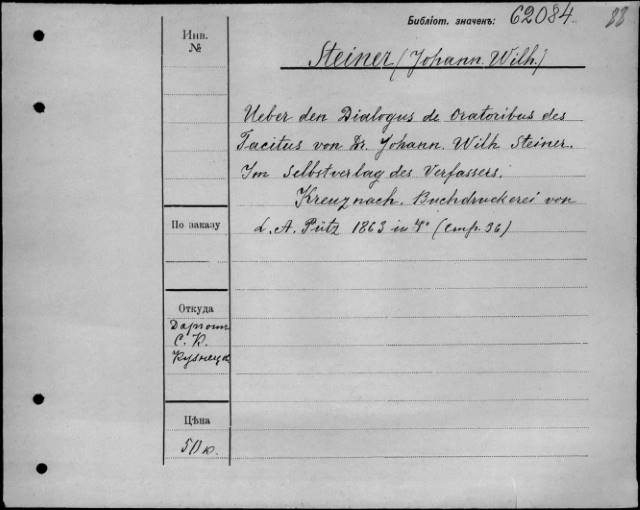 Библіот. значенъ: 62084. 88
Инв.
№
Steiner (Johann. Wilh.)
Ueber den Dialogus de Oratoribus des
Tacitus von Dr. Johann. Wilh Steiner.
Im Selbstverlag des Verfassers.
Kreuznach. Buchdruckerei von
По заказу
L. A. Pütz 1863 in 4° (стр. 36)
Откуда
С. К.
Кузнецк
Цѣна
50 к.